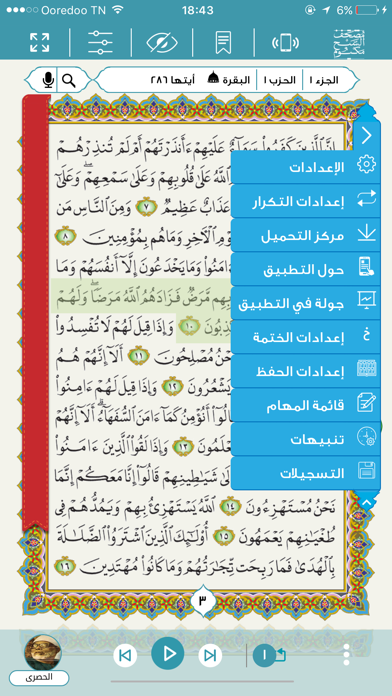 Ooredoo TN 18:43 6%
الجزء ١ الحزب ١ البقرة أيتها ٢٨٦
إِنَّ ٱلَّذِينَ كَفَرُواْ سَوَآءٌ عَلَيْهِمْ ءَأَنذَرْتَهُمْ أَمْ لَمْ تُنذِرْهُمْ
ٱللَّهُ عَلَىٰ قُلُوبِهِمْ وَعَلَىٰ سَمْعِهِمْ ۖ وَعَلَىٰٓ
عَذَابٌ عَظِيمٌ ٧ وَمِنَ ٱلنَّاسِ مَن
ٱلْأَخِرِ وَمَا هُم بِمُؤْمِنِينَ ٨
ءَامَنُواْ وَمَا يَخْدَعُونَ إِلَّآ أَنفُسَهُمْ وَمَا
مَّرَضٌ فَزَادَهُمُ ٱللَّهُ مَرَضًا ۖ وَلَهُمْ
١٠ وَإِذَا قِيلَ لَهُمْ لَا تُفْسِدُواْ
مُصْلِحُونَ ١١ أَلَآ إِنَّهُمْ هُمُ
يَشْعُرُونَ ١٢ وَإِذَا قِيلَ لَهُمْ ءَامِنُواْ
أَنُؤْمِنُ كَمَآ ءَامَنَ ٱلسُّفَهَآءُ ۗ أَلَآ إِنَّهُمْ
١٣ وَإِذَا لَقُواْ ٱلَّذِينَ ءَامَنُواْ
شَيَٰطِينِهِمْ قَالُوٓاْ إِنَّا مَعَكُمْ إِنَّمَا
نَحْنُ مُسْتَهْزِءُونَ ١٤ ٱللَّهُ يَسْتَهْزِئُ بِهِمْ وَيَمُدُّهُمْ فِى
طُغْيَٰنِهِمْ يَعْمَهُونَ ١٥ أُوْلَٰٓئِكَ ٱلَّذِينَ ٱشْتَرَوُاْ ٱلضَّلَٰلَةَ
بِٱلْهُدَىٰ فَمَا رَبِحَت تِّجَٰرَتُهُمْ وَمَا كَانُواْ مُهْتَدِينَ ١٦
٣
الإعدادات
إعدادات التكرار
مركز التحميل
حول التطبيق
جولة في التطبيق
إعدادات الختمة
إعدادات الحفظ
قائمة المهام
تنبيهات
التسجيلات
الحصرى
١